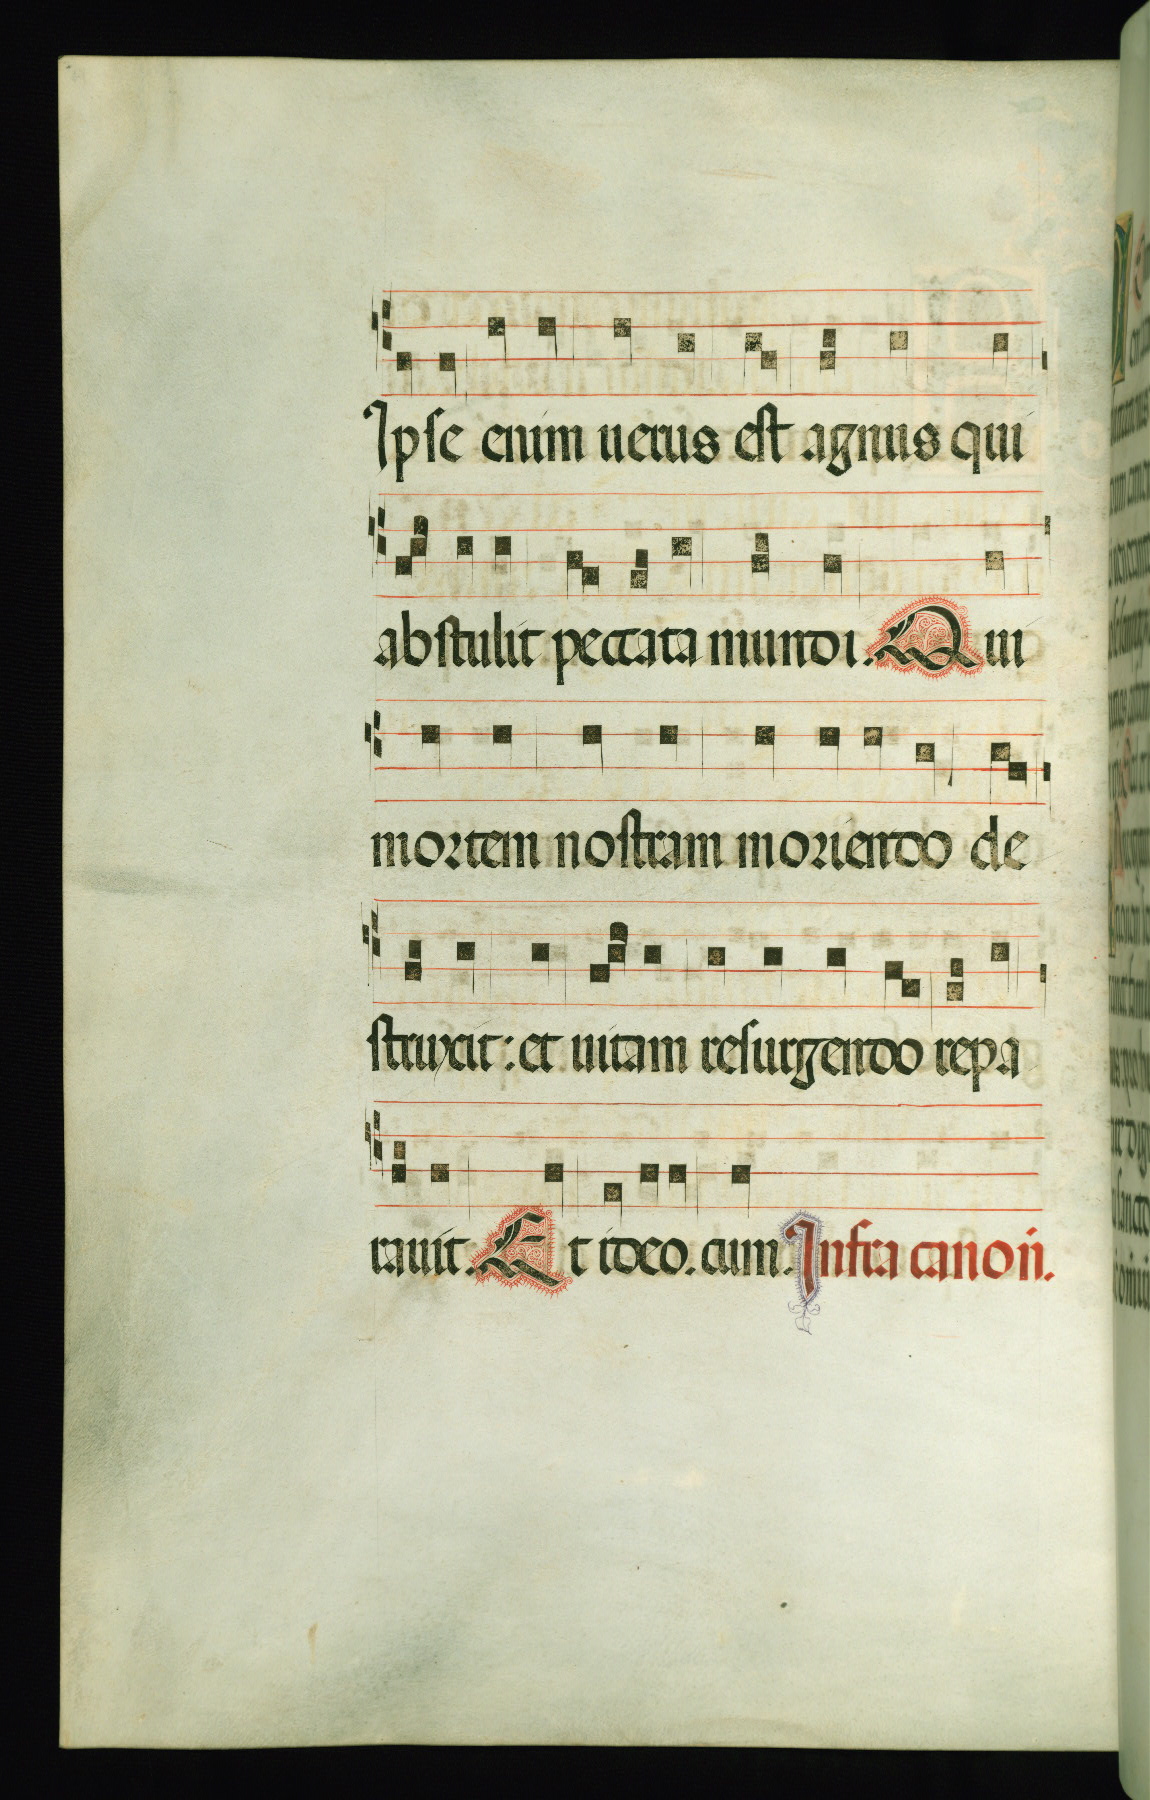 Ipse enim uerus est agnus qui
abstulit peccata mundi. Qui
mortem nostram moriendo de
struxit: et uitam resurgendo repa
rauit. Et ideo. cum. Infra canon̄.